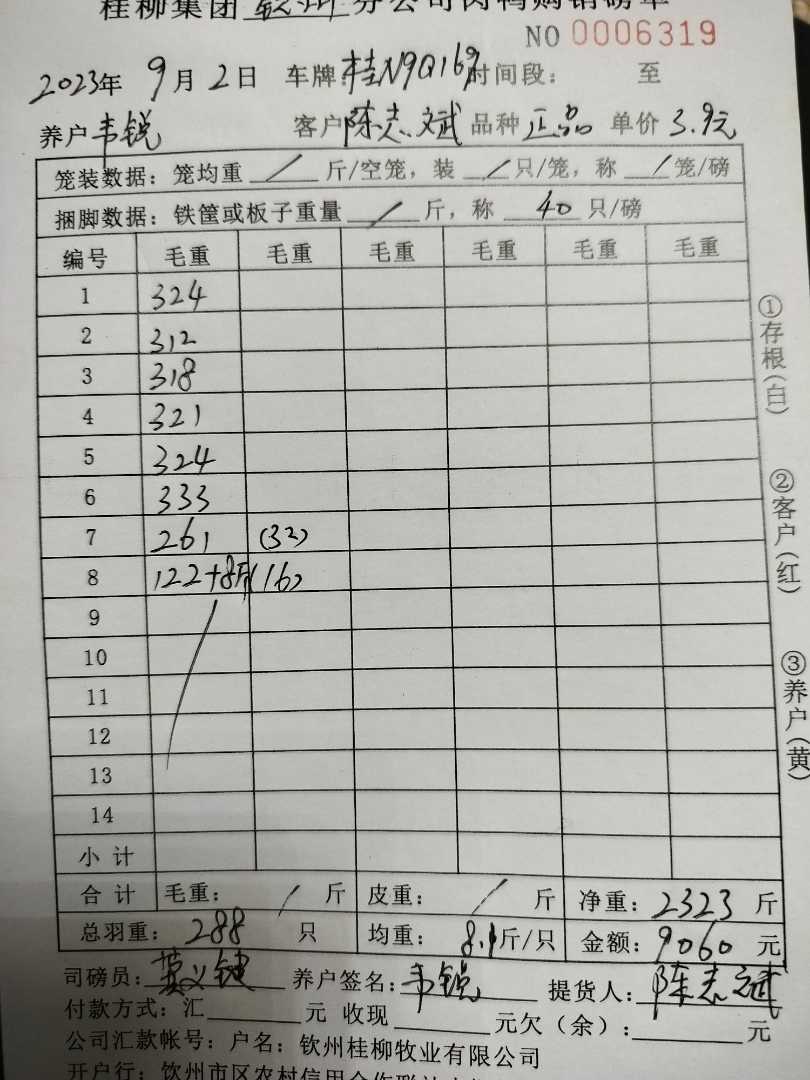 桂柳集团 钦州 分公司肉鸭购销磅单
NO 0006319
2023年 9月 2日 车牌:桂N9Q169 时间段: 至
养户 韦锐 客户 陈志斌 品种 正品 单价 3.9元
笼装数据:笼均重 / 斤/空笼,装 / 只/笼,称 / 笼/磅
捆脚数据:铁筐或板子重量 / 斤,称 40 只/磅
编号 毛重 毛重 毛重 毛重 毛重 毛重
1 324
2 312
3 318
4 321
5 324
6 333
7 261 (32)
8 122+8斤(16)
9
10
11
12
13
14
小计
合计 毛重: / 斤 皮重: / 斤 净重:2323 斤
总羽重: 288 只 均重: 8.1斤/只 金额:9060 元
司磅员: 养户签名:韦锐 提货人:陈志斌
付款方式:汇 元 收现 元欠(余): 元
公司汇款帐号:户名:钦州桂柳牧业有限公司
开户行:钦州市区农村信用合作联社
①存根(白)
②客户(红)
③养户(黄)